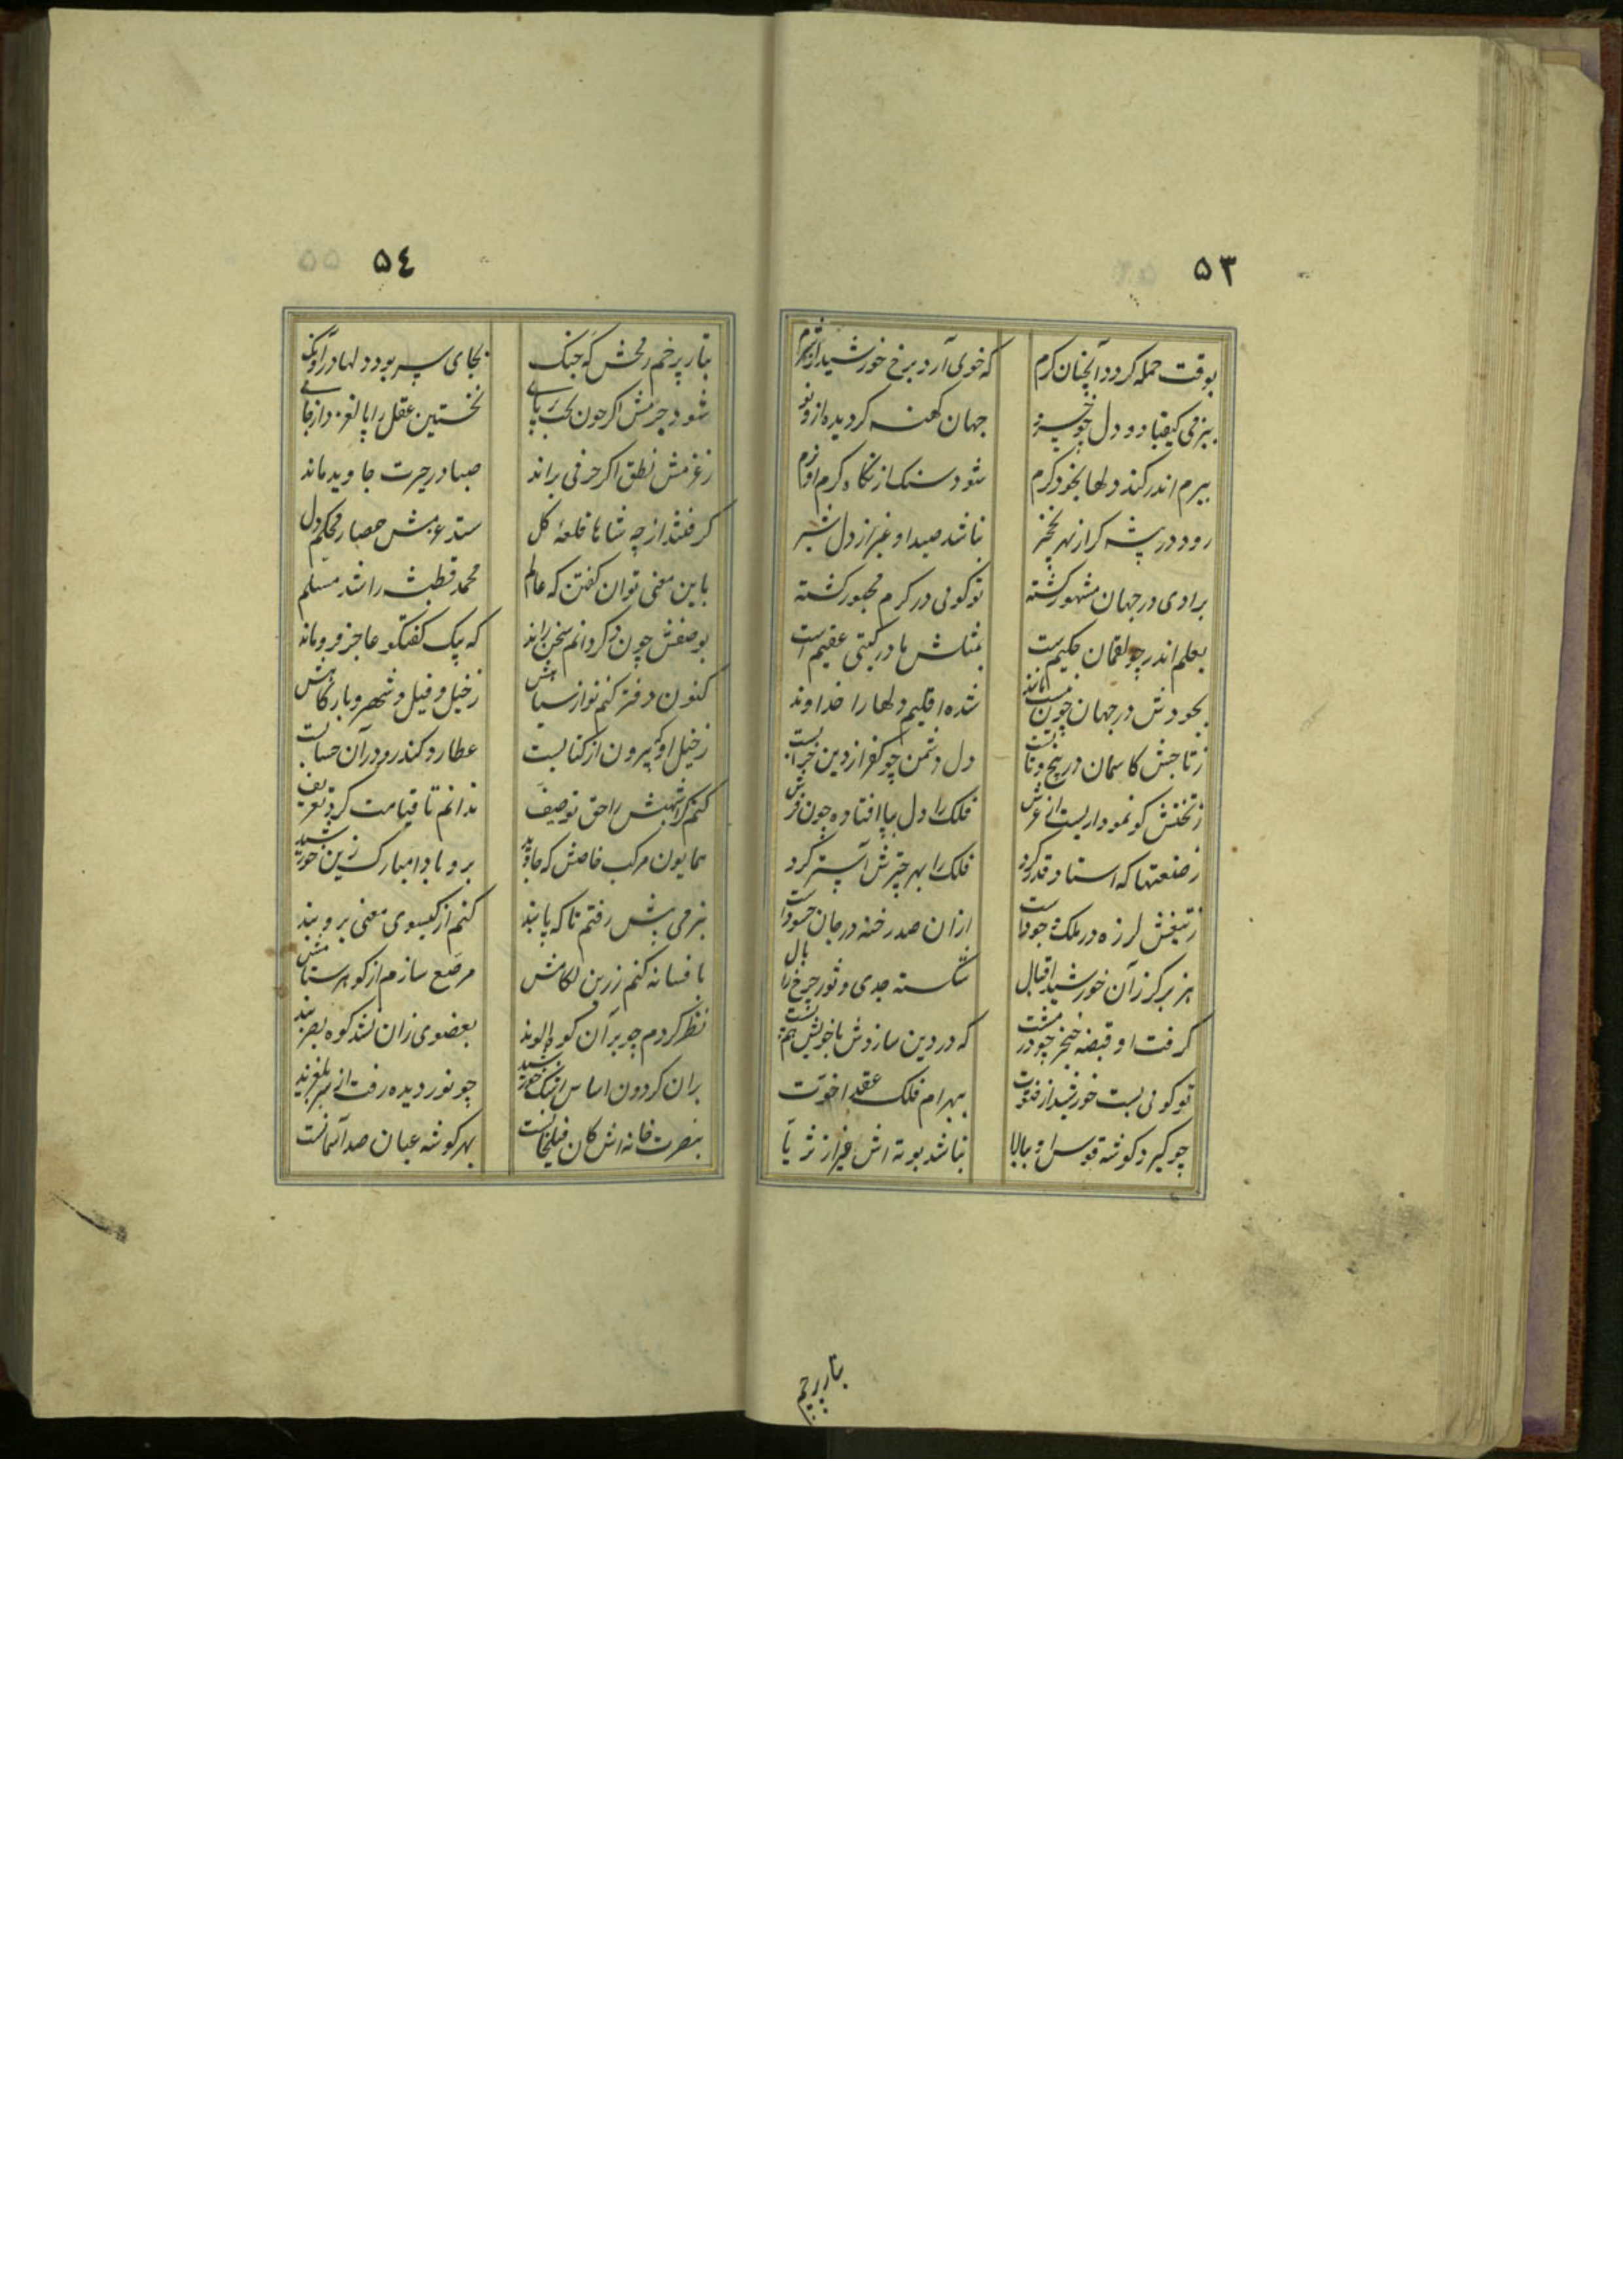 ۵۳
بوقت حمله کردد آنچنان کرم که خوی آرد برخ خورشید
ببزمی کیقباد و دل جهان کهنه کردیده ازو نو
ببزم اندر کند دلها بخود کرم شود سنک از نکاه کرم او نرم
رود در بیشه کر از بهر نخجیر نباشد صید او غیر از دل شیر
برادی در جهان مشهور کشته توکوئی در کرم مجبور کشته
بعلم اندر چو لقمان حکیم است بمثلش مادر کیتی عقیم است
بجودش در جهان چون نیست مانند شده اقلیم دلها را خداوند
زتاجش کاسمان در پیچ و تابست دل دشمن چو کفر از دین خرابست
زتختش کو نمودار یست از عرش فلک را دل بپا افتاده چون فرش
زصنعتها که استاد قدر کرد فلک را بهر چترش آستر کرد
زتیغش لرزه در ملک وجود است ازان صد رخنه در جان حسود است
هزبر کرز آن خورشید اقبال شکسته جدی و ثور چرخ را بال
کرفت او قبضه خنجر چو در مشت که در دین سازدش با خویش هم پشت
توکوئی بست خورشید از فتوت ببهرام فلک عقد اخوّت
چو کیرد کوشه قوس او ببالا نباشد بوته اش غیر از ثریّا
بتار پرچم
۵٤
بتار پرخم رمحش که جنک بجای سر بود دلها در آونک
شود جرمش اکر چون نخستین عقل را پا لغزد از جای
زعزمش نطق اکر حرفی براند صبا در حیرت جاوید ماند
کرفتند از چه شاها قلعهٔ کل ستد عزمش حصار محکم دل
باین معنی توان کفتن که عالم محمد قطبشه را شد مسلم
بوصفش چون کردانم سخن راند که پیک کفتکو عاجز فروماند
کنون دفتر کنم نو از سپاهش زخیل و فیل و شهر و بارکاهش
زخیل او که بیرون از کتابست عطارد کندرو در آن حسابست
کنم کر اشهبش را حق توصیف ندانم تا قیامت کرد تعریف
همایون مرکب خاصش که جاوید برو بادا مبارک زین خورشید
بنرمی پیش رفتم تا که پابند کنم از کیسوی معنی برو بند
بافسانه کنم زرین لکامش مرصّع سازم از کوهر ستامش
نظر کردم چو بر آن کوه الوند بعضوی زان نشد کوه بصر بند
بران کردون اساس چو نور دیده رفت از سر بلغزید
بنصرت خانه اش کان فیلخانست بهر کوشه عیان صد آسمانست